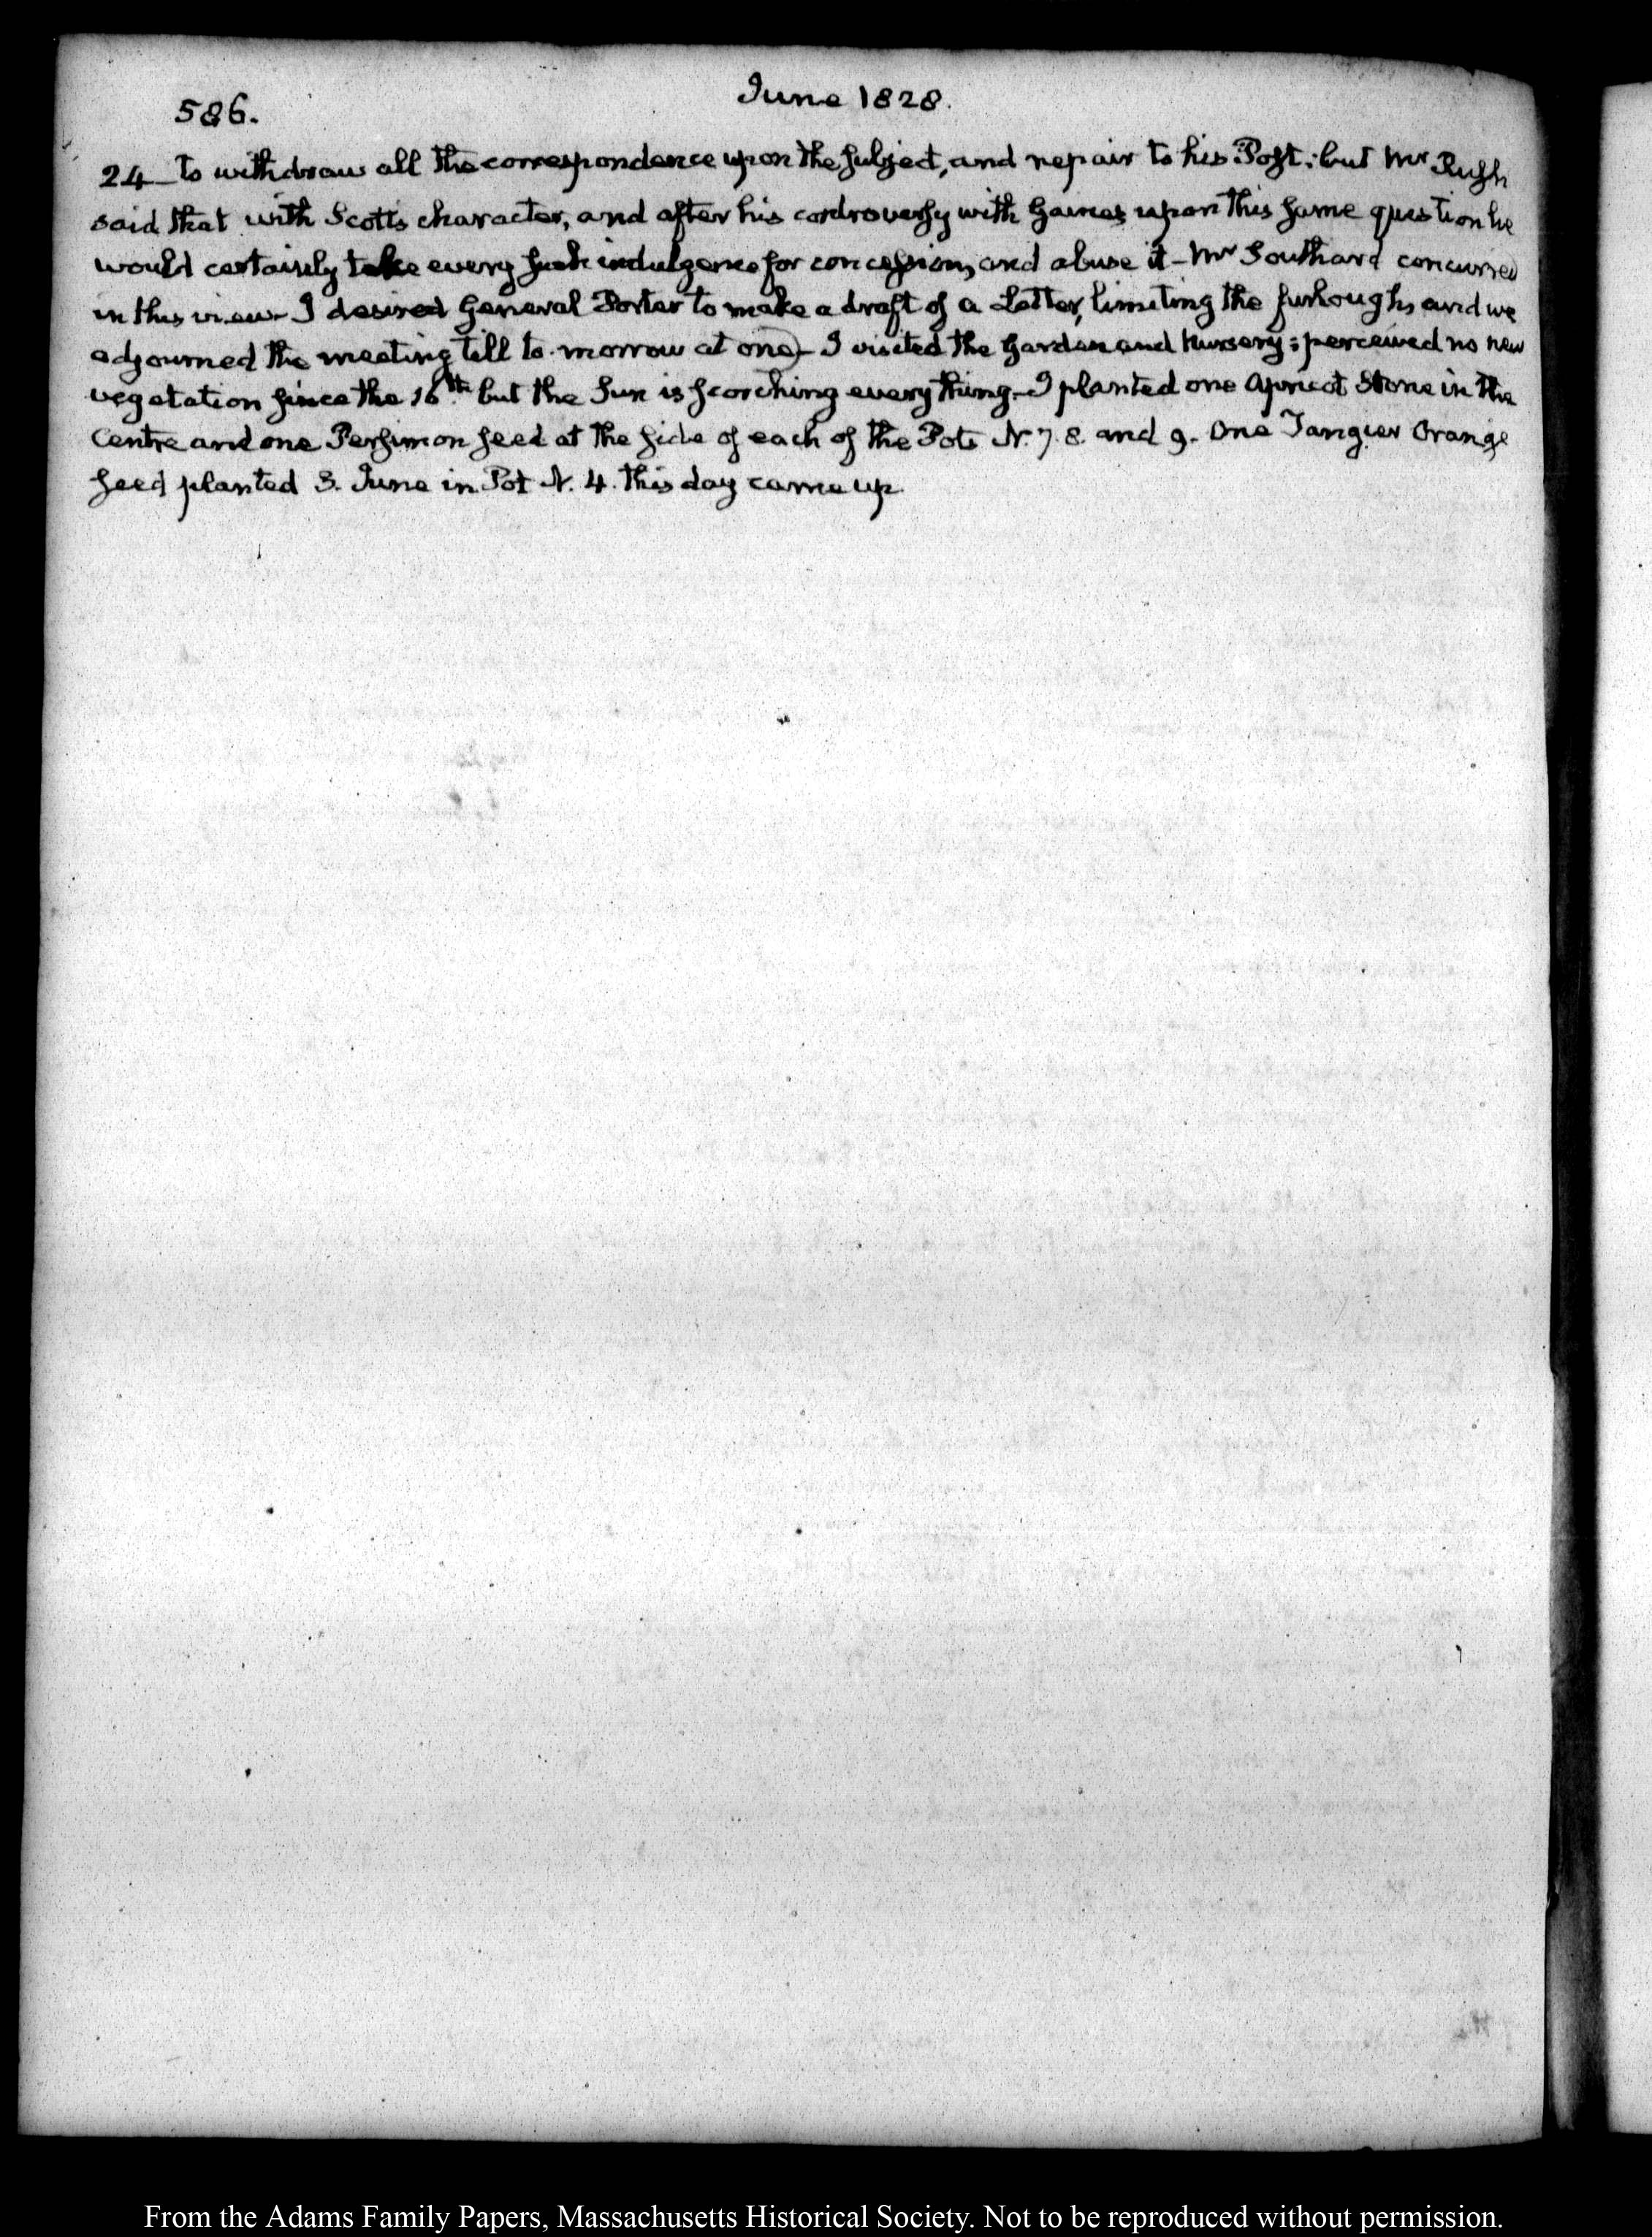 586.
June 1828.
24 — to withdraw all the correspondence upon the subject, and repair to his Post: but Mr Rush
said that with Scott's character, and after his controversy with Gaines upon this same question he
would certainly take every such indulgence for concession, and abuse it — Mr Southard concurred
in this view — I desired General Porter to make a draft of a Letter, limiting the furloughs and we
adjourned the meeting till to-morrow at one) — I visited the Garden and Nursery; perceived no new
vegetation since the 16th but the Sun is scorching every thing — I planted one Apricot Stone in the
Centre and one Persimon seed at the side of each of the Pots N. 7. 8. and 9. One Tangier Orange
seed planted 3. June in Pot N. 4. this day came up.
From the Adams Family Papers, Massachusetts Historical Society. Not to be reproduced without permission.